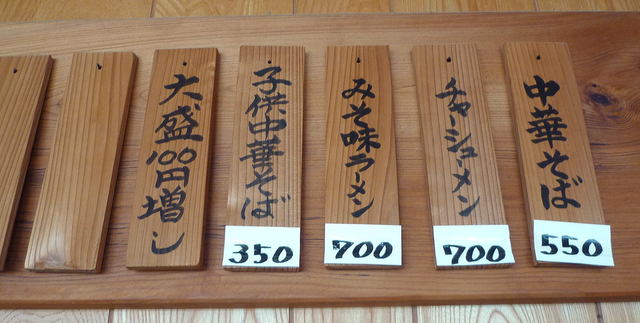 中華そば
550
チャーシューメン
700
みそ味ラーメン
700
子供中華そば
350
大盛100円増し